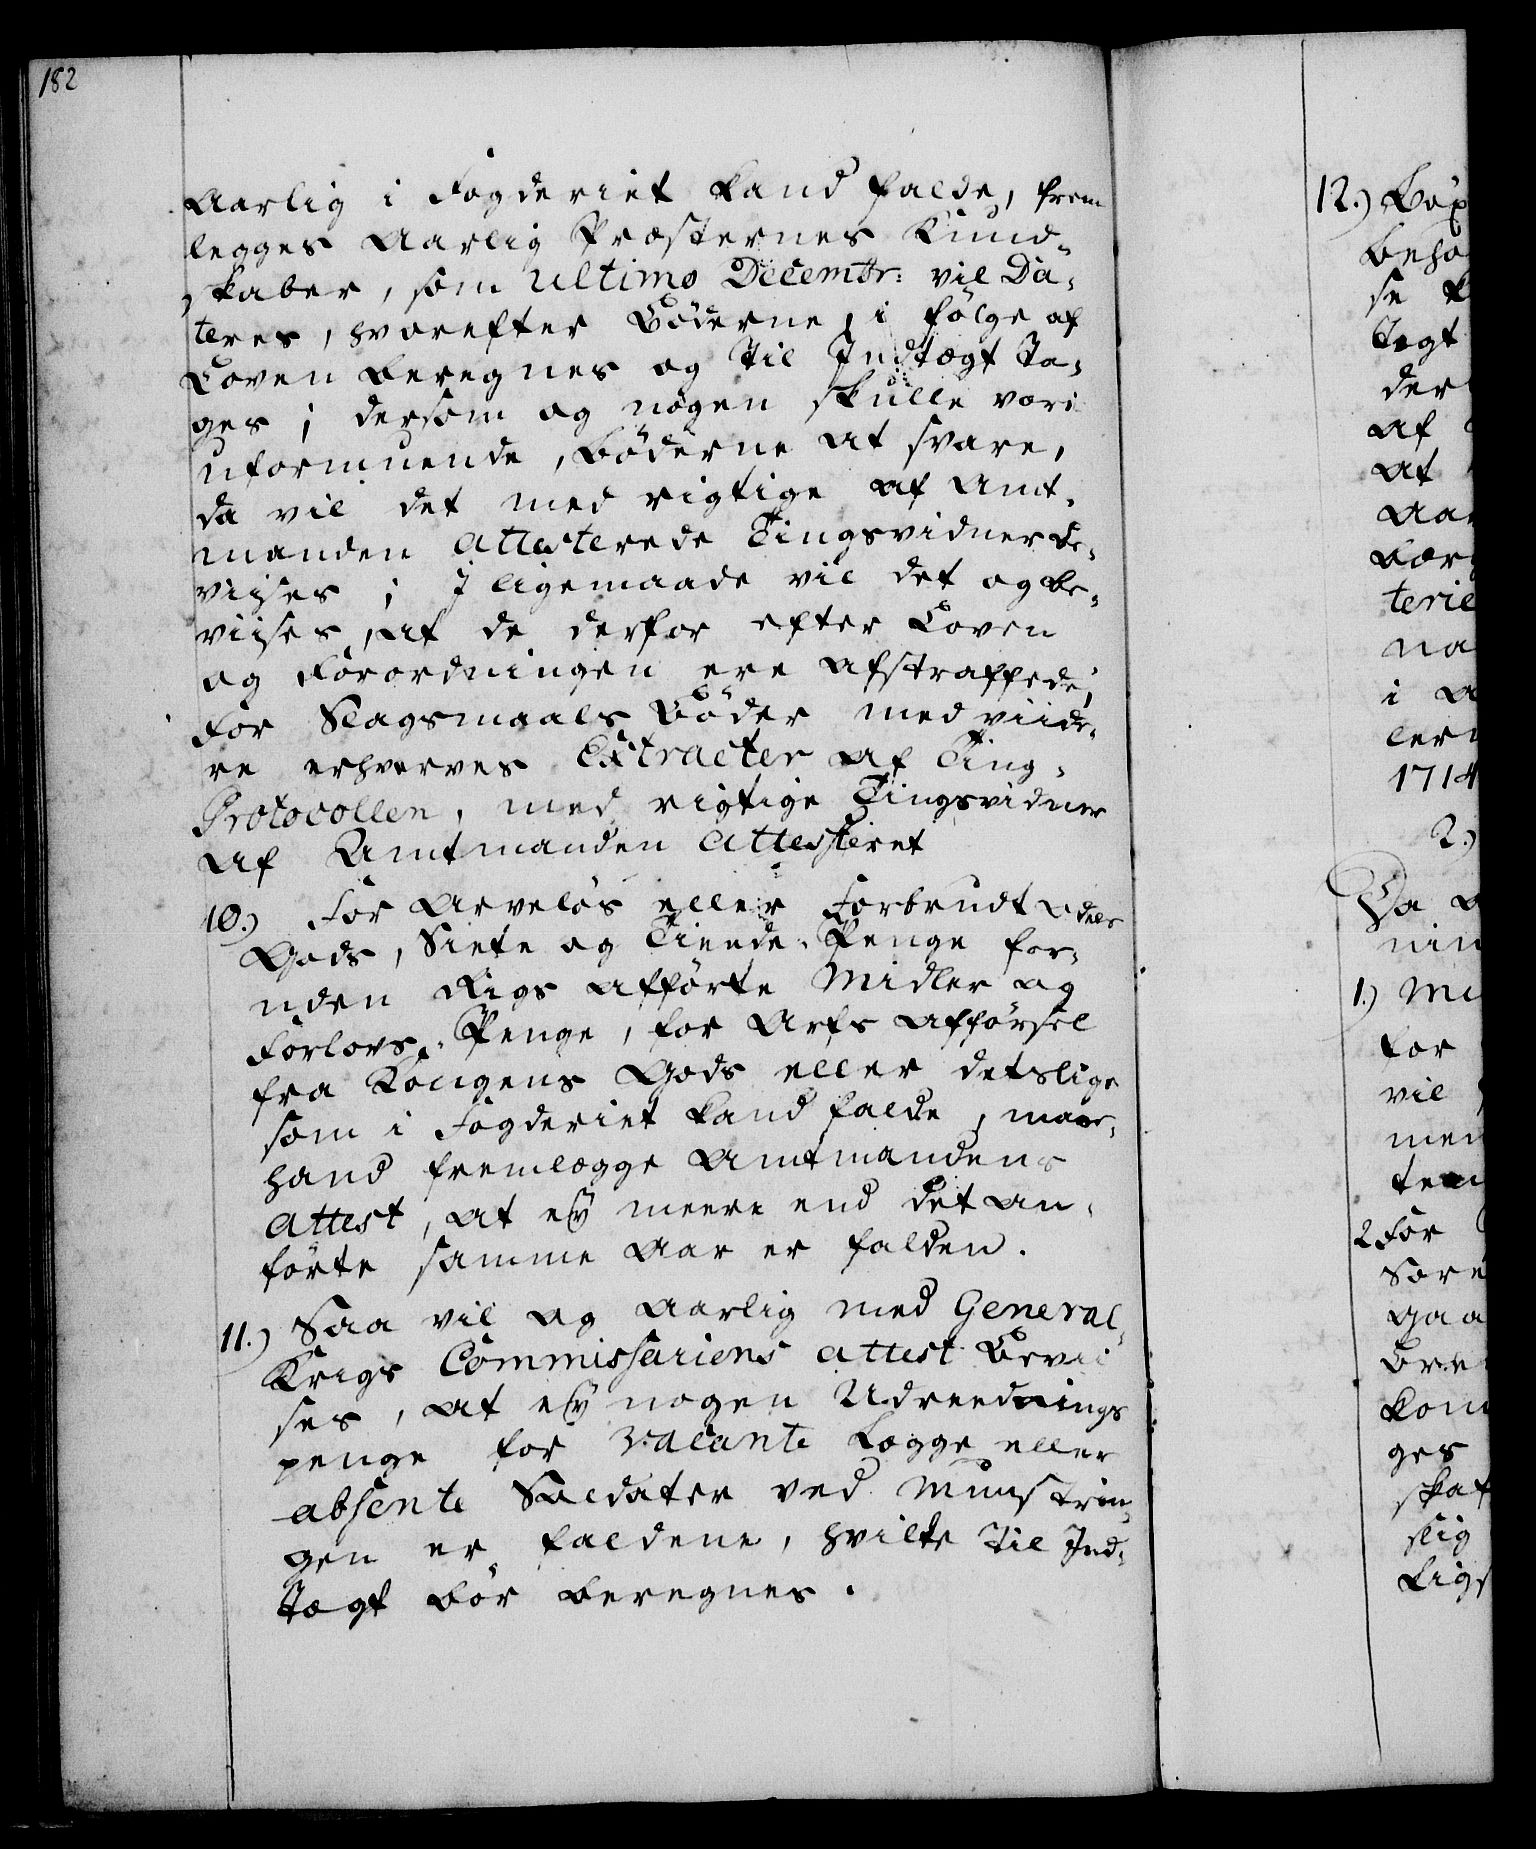 182
Aarlig i Fogderiet kand falde, frem
legges Aarlig Præsternes Kund-
skaber, som ultimo Decembr: vil Da-
teres, hvorefter Bøderne, i følge af
Loven beregnes og til Indtægt Ta-
ges; dersom og nogen skulle væri
uformuende, Bøderne at svare,
da vil det med rigtige af Amt-
manden attesterede Tingsvidner be-
viises; I ligemaade vil det og be-
viises, at de derfor efter Loven
og Forordningen ere afstraffede,
For Slagsmaals Bøder med viide-
re erhverves Extracter af Ting-
Protocollen, med rigtige Tingsvidner
af Amtmanden attesteret
10.) For Arveløs eller Forbrudt Odels
Gods, Siete og Tiende Penge for-
uden Rigs afførte Midler og
Forlovs-Penge, for Arfs afførsel
fra Kongens Gods eller detslige
som i Fogderiet kand falde, maae
hand fremlægge Amtmandens
attest, at eÿ meere end det an-
førte samme Aar er falden.
11.) Saa vil og Aarlig med General-
Krigs Commissariens attest Bevii
ses, at eÿ nogen Udreednings
penge for Vacante Lægge eller
absente Soldater ved Munstrin-
gen er faldene, hvilke til Ind-
Tægt bør beregnes.
12.)
af
at
i
1714
2.)
1.)
for
vil
2 For
ges